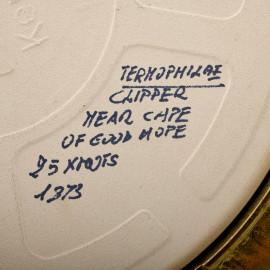 TERMOPHILAE
CLIPPER
NEAR CAPE
OF GOOD HOPE
25 KNOTS
1373